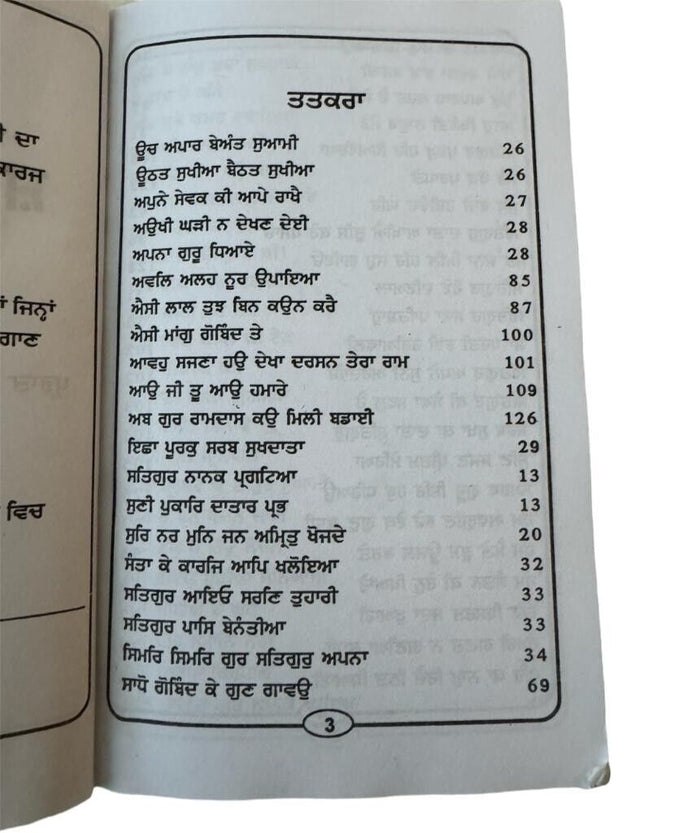 ੀ ਦਾ
ਕਾਰਜ
ਾਂ ਜਿਨ੍ਹਾਂ
ਗਾਣ
ਵਿਚ
ਤਤਕਰਾ
ਊਚ ਅਪਾਰ ਬੇਅੰਤ ਸੁਆਮੀ 26
ਊਠਤ ਸੁਖੀਆ ਬੈਠਤ ਸੁਖੀਆ 26
ਅਪੁਨੇ ਸੇਵਕ ਕੀ ਆਪੇ ਰਾਖੈ 27
ਅਉਖੀ ਘੜੀ ਨ ਦੇਖਣ ਦੇਈ 28
ਅਪਨਾ ਗੁਰੂ ਧਿਆਏ 28
ਅਵਲਿ ਅਲਹ ਨੂਰ ਉਪਾਇਆ 85
ਐਸੀ ਲਾਲ ਤੁਝ ਬਿਨ ਕਉਨ ਕਰੈ 87
ਐਸੀ ਮਾਂਗੁ ਗੋਬਿੰਦ ਤੇ 100
ਆਵਹੁ ਸਜਣਾ ਹਉ ਦੇਖਾ ਦਰਸਨ ਤੇਰਾ ਰਾਮ 101
ਆਉ ਜੀ ਤੂ ਆਉ ਹਮਾਰੇ 109
ਅਬ ਗੁਰ ਰਾਮਦਾਸ ਕਉ ਮਿਲੀ ਬਡਾਈ 126
ਇਛਾ ਪੂਰਕੁ ਸਰਬ ਸੁਖਦਾਤਾ 29
ਸਤਿਗੁਰ ਨਾਨਕ ਪ੍ਰਗਟਿਆ 13
ਸੁਣੀ ਪੁਕਾਰਿ ਦਾਤਾਰ ਪ੍ਰਭ 13
ਸੁਰਿ ਨਰ ਮੁਨਿ ਜਨ ਅਮ੍ਰਿਤੁ ਖੋਜਦੇ 20
ਸੰਤਾ ਕੇ ਕਾਰਜਿ ਆਪਿ ਖਲੋਇਆ 32
ਸਤਿਗੁਰ ਆਇਓ ਸਰਣਿ ਤੁਹਾਰੀ 33
ਸਤਿਗੁਰ ਪਾਸਿ ਬੇਨੰਤੀਆ 33
ਸਿਮਰਿ ਸਿਮਰਿ ਗੁਰ ਸਤਿਗੁਰੁ ਅਪਨਾ 34
ਸਾਧੋ ਗੋਬਿੰਦ ਕੇ ਗੁਣ ਗਾਵਉ 69
3